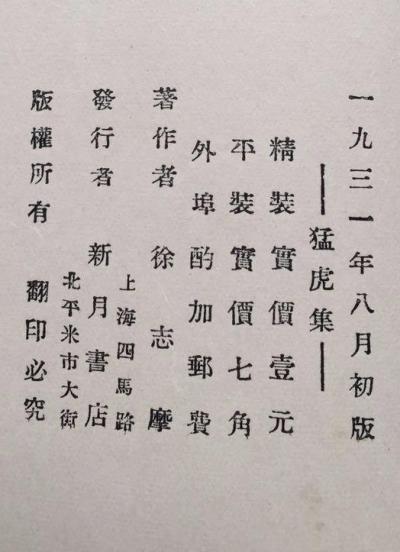 一九三一年八月初版
猛虎集
精裝實價壹元
平裝實價七角
外埠酌加郵費
著作者 徐志摩
發行者 新月書店
上海四馬路
北平米市大街
版權所有 翻印必究